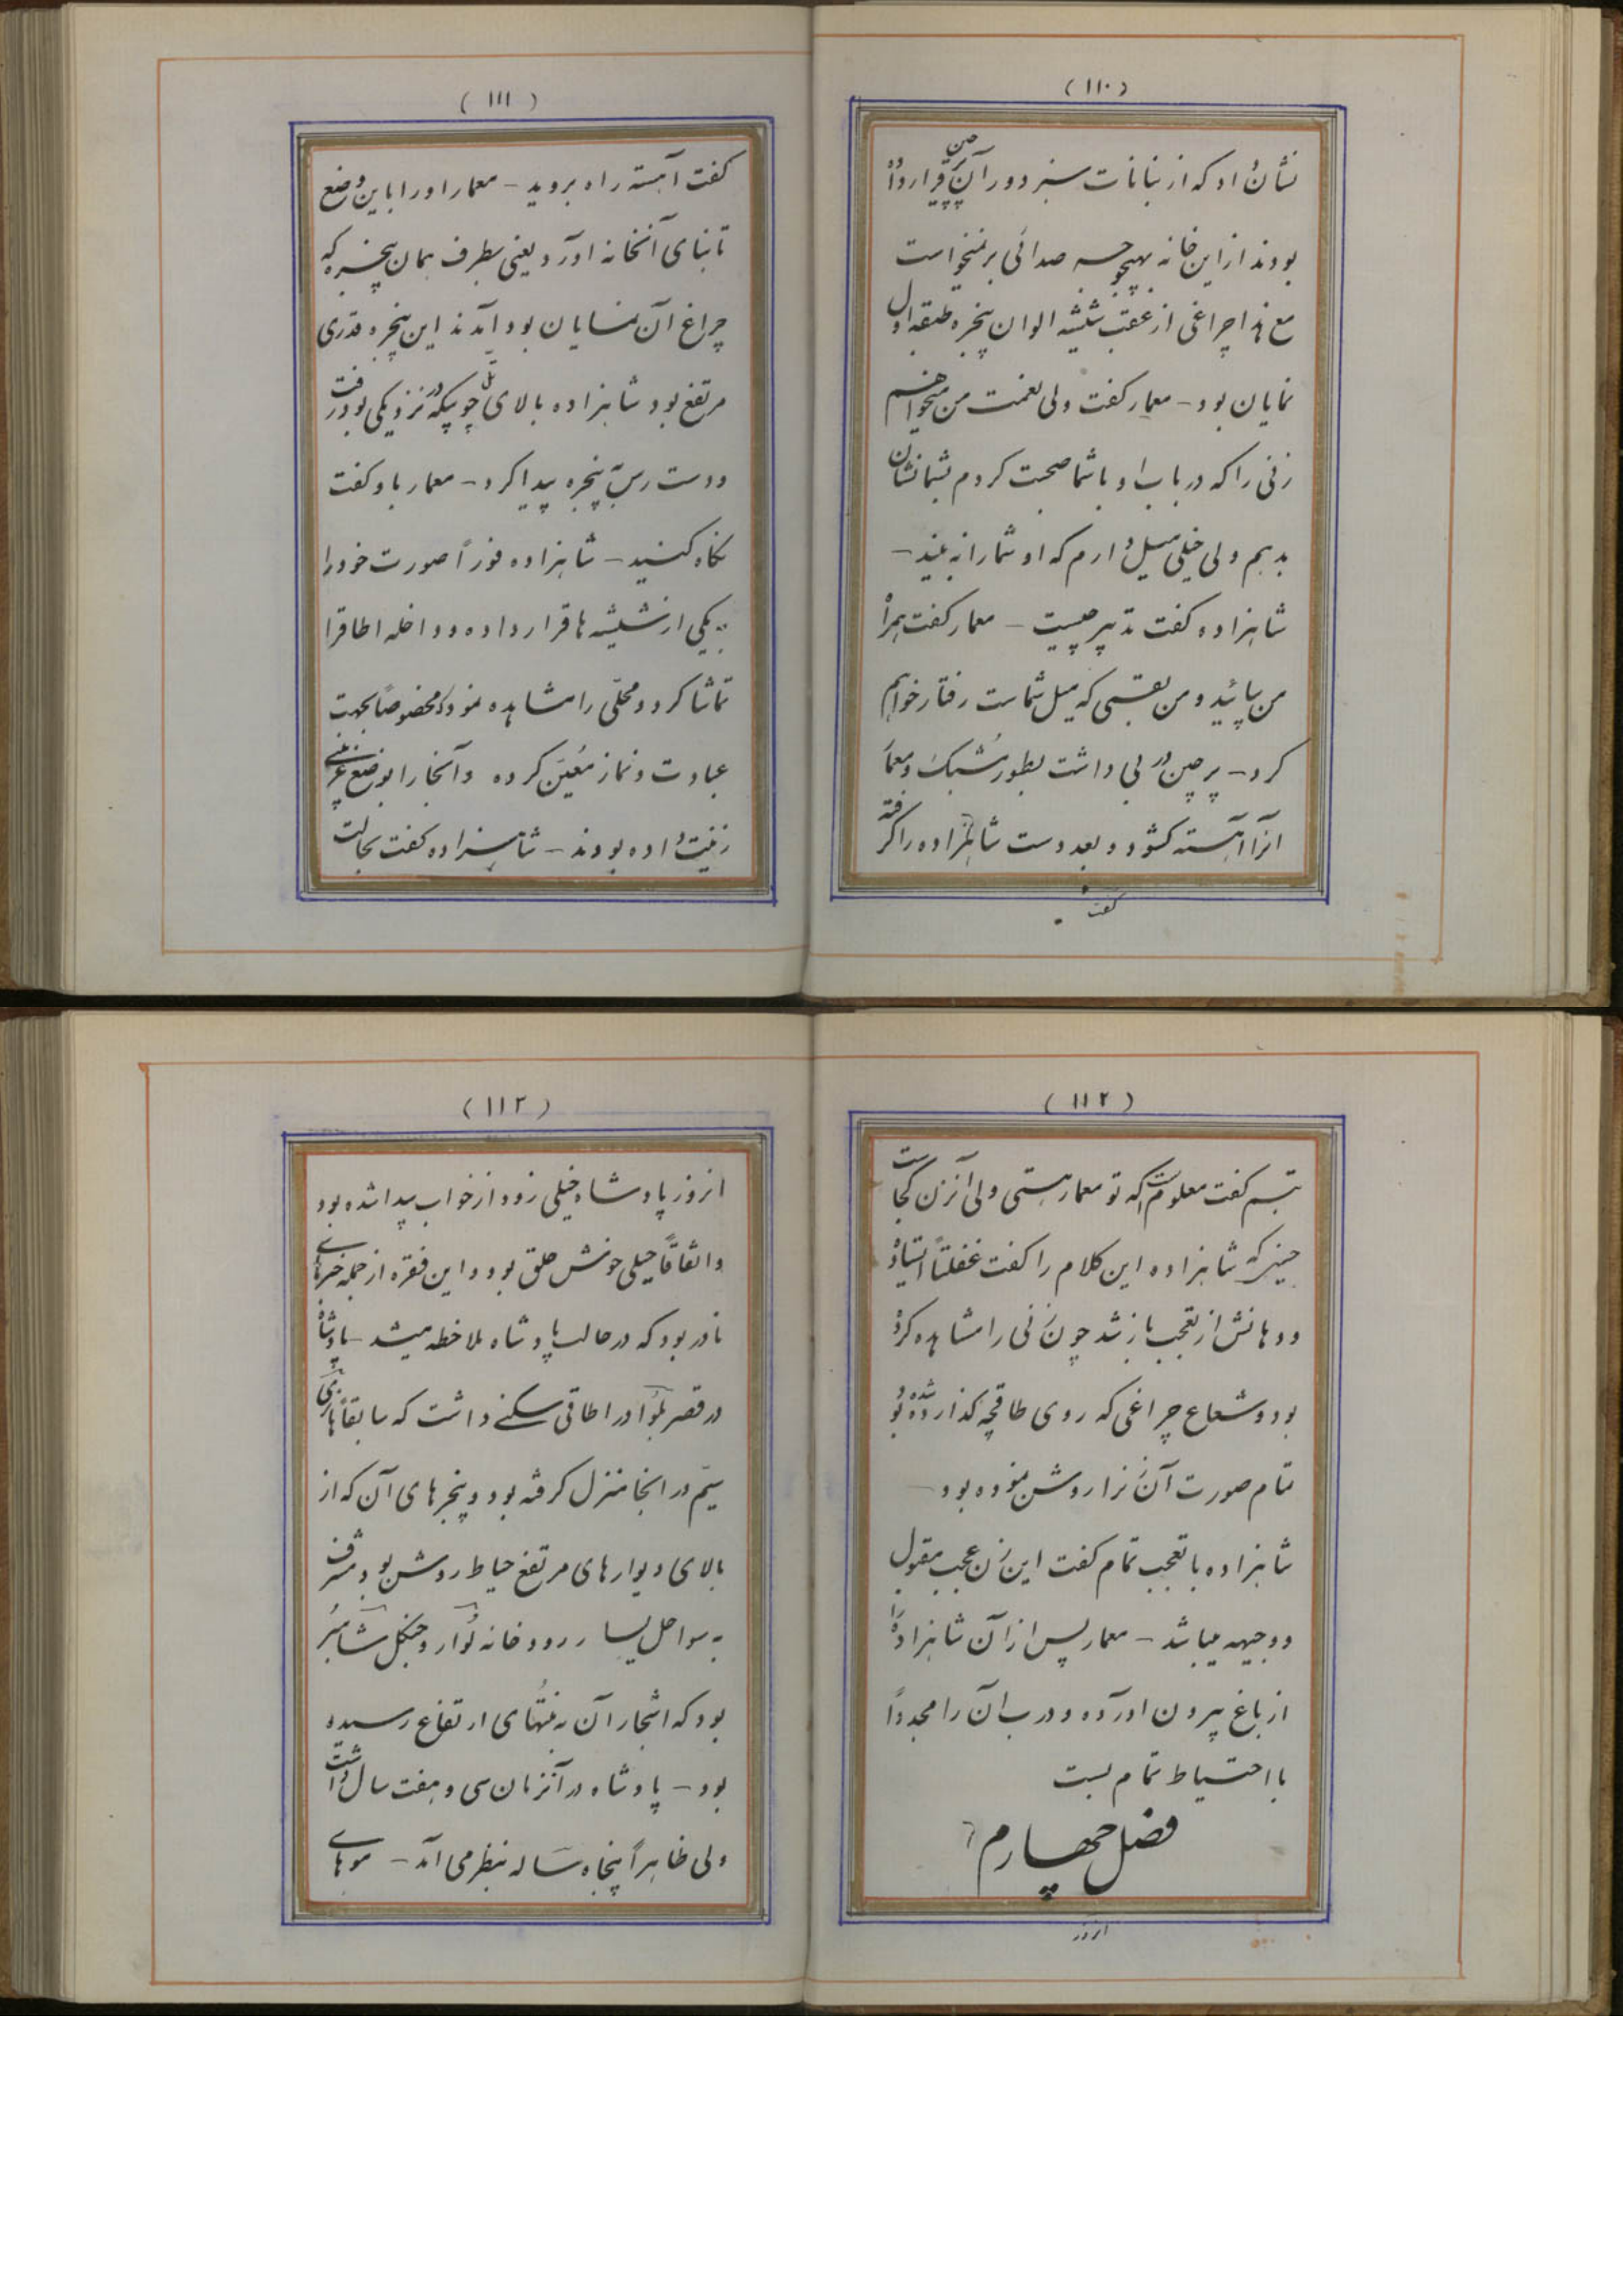 (۱۱۰)
نشان داد که از نباتات سبز دور آن پرچین قرار داده
بودند از این خانه بهیچوجه صدائی برنمیخواست
مع هذا چراغی از عقب شیشه الوان پنجره طبقه اول
نمایان بود – معمار گفت ولی نعمت من میخواهم
زنی را که در باب او با شما صحبت کردم بشما نشان
بدهم ولی خیلی میل دارم که او شما را نه بیند –
شاهزاده گفت تدبیر چیست – معمار گفت همراه
من بیائید و من بقسمی که میل شماست رفتار خواهم
کرد – پرچین در بی داشت بطور مشبک و معمار
آنرا آهسته کشود و بعد دست شاهزاده را گرفته
گفت
(۱۱۱)
گفت آهسته راه بروید – معمار او را باین وضع
تا بنای آنخانه آورد یعنی بطرف همان پنجره که
چراغ آن نمایان بود آمدند این پنجره قدری
مرتفع بود شاهزاده بالای تل چوبیکه در نزدیکی بود رفت
و دست رس به پنجره پیدا کرد – معمار باو گفت
نگاه کنید – شاهزاده فوراً صورت خود را
بیکی از شیشه ها قرار داده و داخله اطاق را
تماشا کرد و محلّی را مشاهده نمود که مخصوصاً بجهت
عبادت و نماز معیّن کرده و آنجا را بوضع غریبی
زینت داده بودند – شاهزاده گفت بحالت
(۱۱۲)
تبسم گفت معلوم است که تو معمار هستی ولی آنزن کجاست
حینیکه شاهزاده این کلام را گفت غفلتاً ایستاد
و دهانش از تعجب باز شد چون زنی را مشاهده کرده
بود و شعاع چراغی که روی طاقچه گذارده شده بود
تمام صورت آن زنرا روشن نموده بود –
شاهزاده با تعجب تمام گفت این زن عجب مقبول
و وجیهه میباشد – معمار پس از آن شاهزاده را
از باغ بیرون آورده و درب آن را مجدداً
با احتیاط تمام بست
فصل چهارم
انروز
(۱۱۳)
انروز پادشاه خیلی زود از خواب بیدار شده بود
و اتفاقاً خیلی خوش خلق بود و این فقره از جمله خبرهای
نادر بود که در حالت پادشاه ملاحظه میشد – پادشاه
در قصر بلوا در اطاقی سکنی داشت که سابقاً هانری
سیّم در آنجا منزل گرفته بود و پنجرهای آن که از
بالای دیوارهای مرتفع حیاط روشن بود مشرف
به سواحل یسار رودخانه لوار و جنگل شامبر
بود که اشجار آن به منتهای ارتفاع رسیده
بود – پادشاه در آنزمان سی و هفت سال داشت
ولی ظاهراً پنجاه ساله بنظر می آمد – موهای